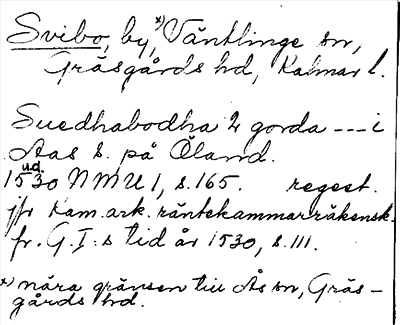 Svibo, by,ˣ⁾ Ventlinge sn,
Gräsgårds hd, Kalmar l.
Suedhabodha 2 gorda --- i
Aas s. på Öland.
u.d.
1530 NMU 1, s. 165. regest.
jfr Kam. ark. räntekammarräkensk.
fr. G. I:s tid år 1530, s. 111.
x) nära gränsen till Ås sn, Gräs-
gårds hd.